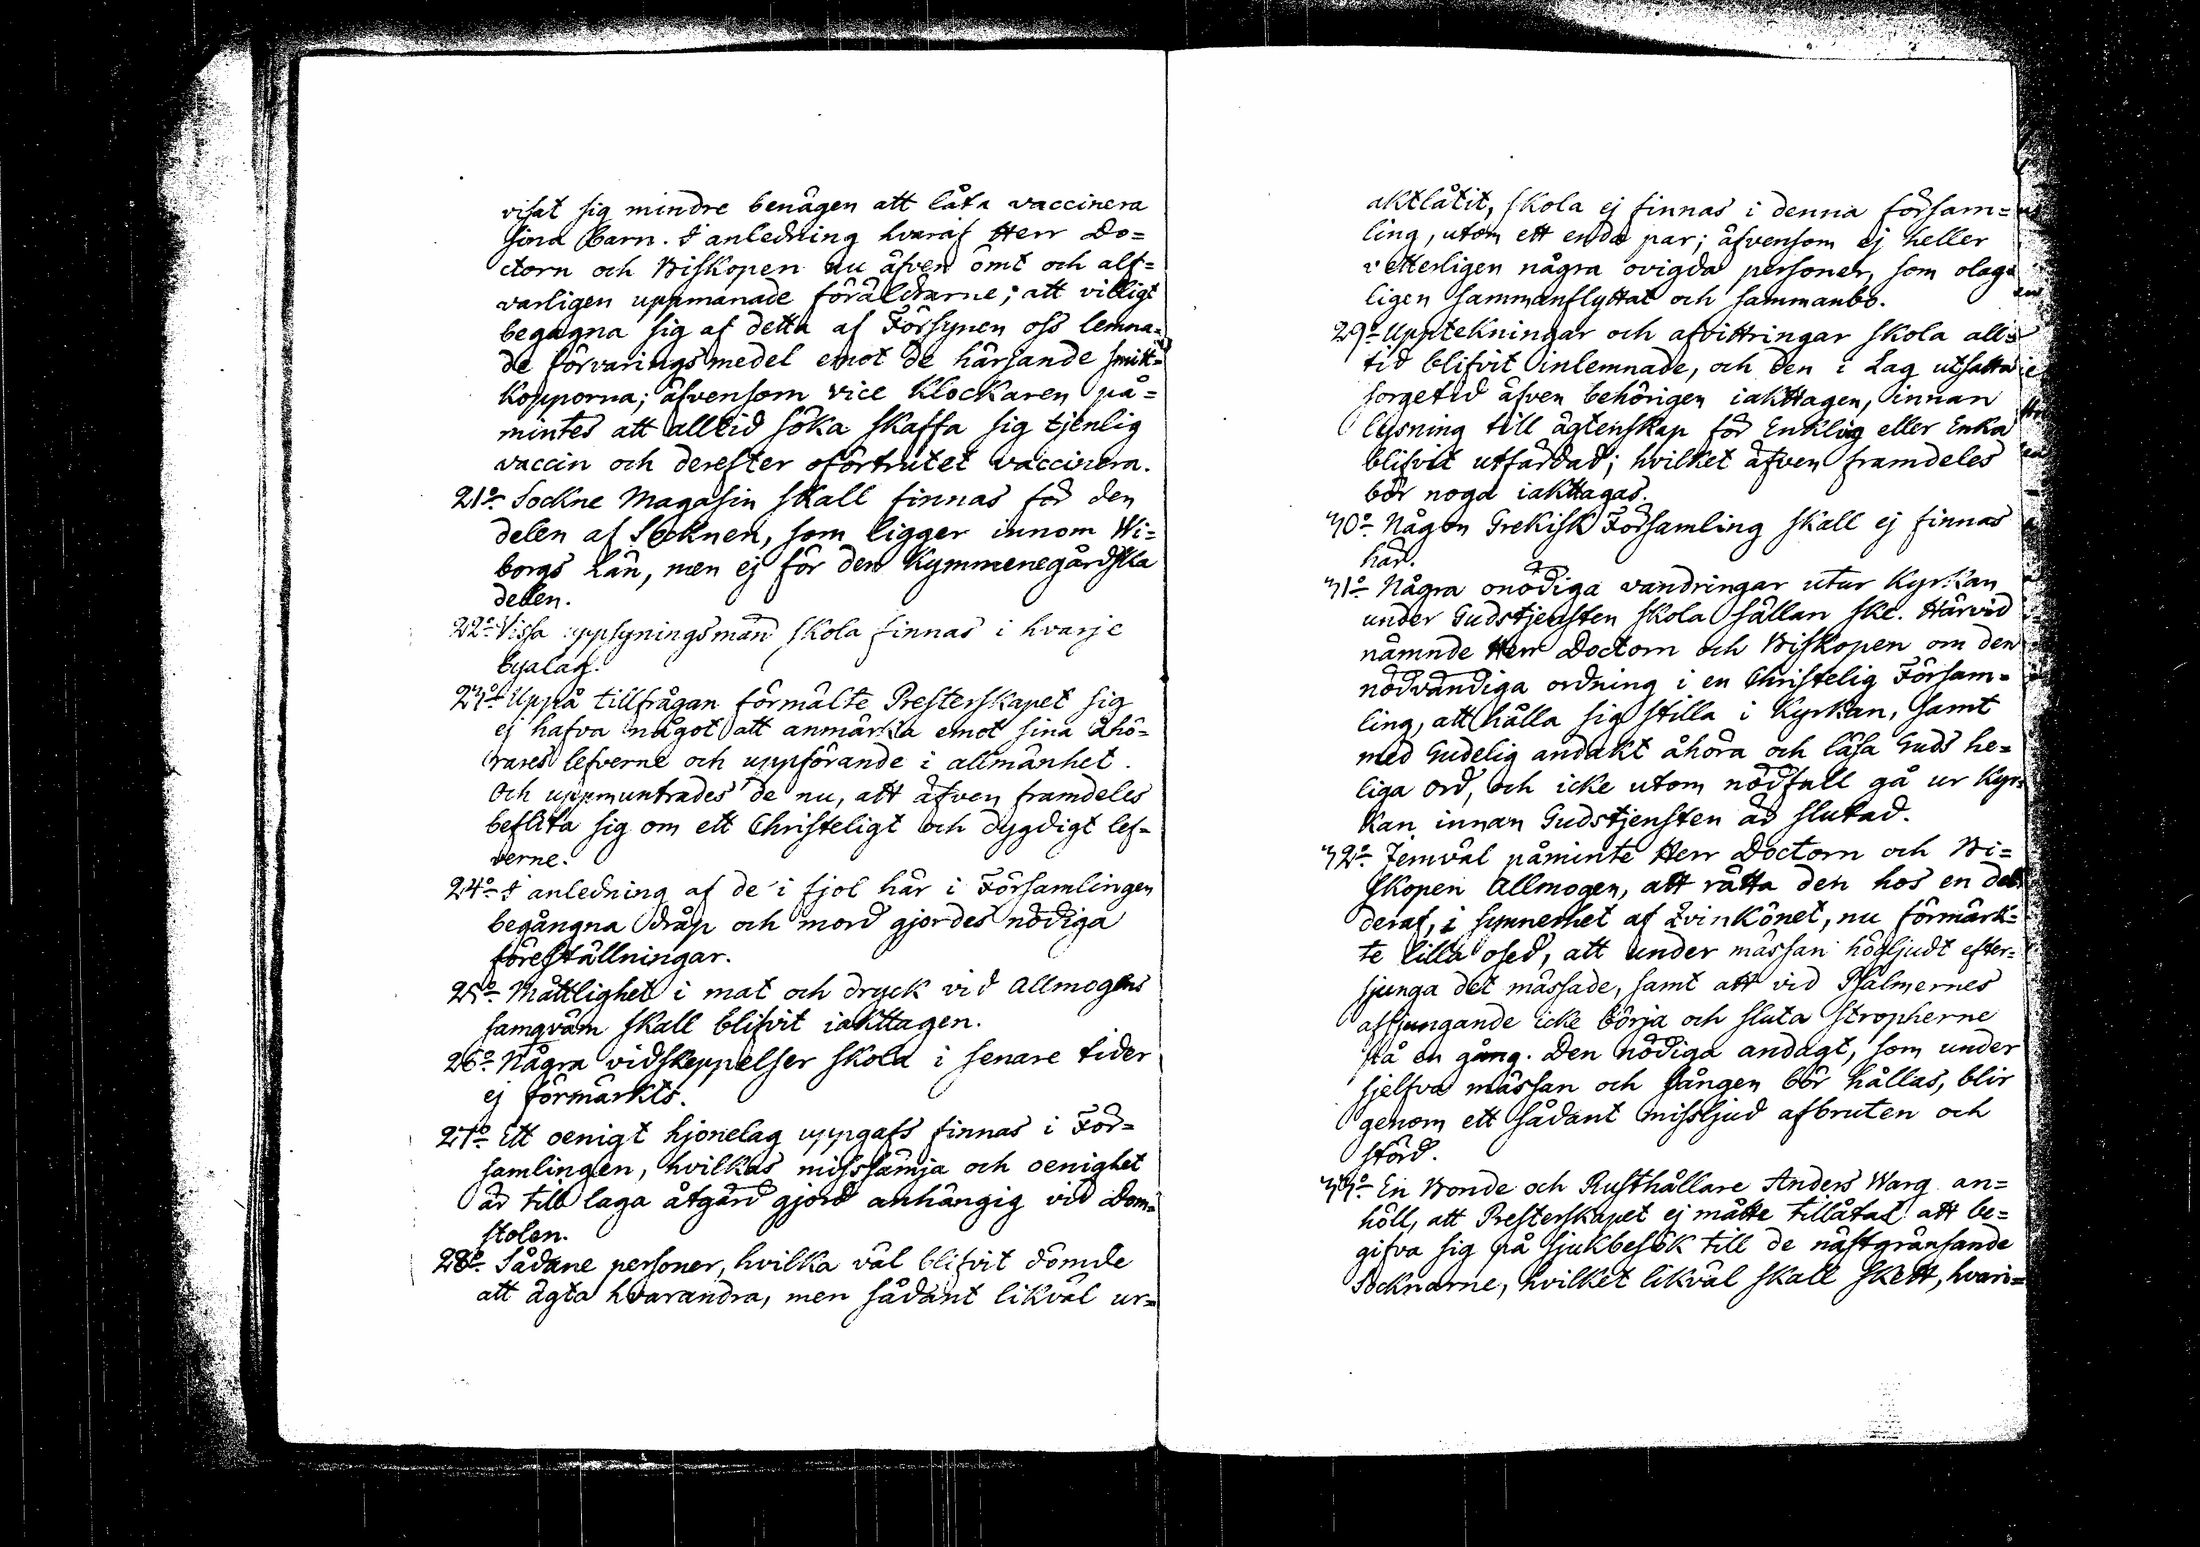 visat sig mindre benägen att låta vaccinera
sina barn. I anledning hvaraf Herr Do=
ctorn och Biskopen nu äfven ömt och alf=
varligen uppmanade föräldrarne; att villigt
begagna sig af detta af Försynen oss lemna=
de förvaringsmedel emot de härjande smitt=
kopporna; äfvensom vice Klockaren på=
mintes att alltid söka skaffa sig tjenlig
vaccin och derefter oförtrutet vaccinera.
21o Sockne Magasin skall finnas för den
delen af Socknen, som ligger innom Wi=
borgs Län, men ej för den Kymmenegårdska
delen.
22o Vissa uppsyningsmän skola finnas i hvarje
byalag.
23o Uppå tillfrågan förmälte Presterskapet sig
ej hafva något att anmärka emot sina åhö=
rares lefverne och uppförande i allmänhet.
Och uppmuntrades de nu, att äfven framdeles
beflita sig om ett Christeligt och dygdigt lef=
verne.
24o I anledning af de i fjol här i Församlingen
begångna dråp och mord gjordes nödiga
föreställningar.
25o Måttlighet i mat och dryck vid Allmogens
samqväm skall blifvit iakttagen.
26o Några vidskeppelser skola i senare tider
ej förmärkts.
27o Ett oenigt hjonelag uppgafs finnas i För=
samlingen, hvilkas misssämja och oenighet
är till laga åtgärd gjord anhängig vid Dom=
stolen.
28o Sådane personer, hvilka väl blifvit dömde
att ägta hvarandra, men sådant likväl ur=
aktlåtit, skola ej finnas i denna försam=
ling, utom ett enda par; äfvensom ej heller
vetterligen några ovigda personer, som olag=
ligen sammanflyttat och sammanbo.
29o Upptekningar och afvittringar skola all=
tid blifvit inlemnade, och den i Lag utsatta
sorgetid äfven behörigen iakttagen, innan
lysning till ägtenskap för Enkling eller Enka
blifvit utfärdad; hvilket äfven framdeles
bör noga iakttagas.
30o Någon Grekisk Församling skall ej finnas
här.
31o Några onödiga vandringar utur Kyrkan
under Gudstjensten skola sällan ske. Härvid
nämnde Herr Doctorn och Biskopen om den
nödvändiga ordning i en Christelig Försam=
ling, att hålla sig stilla i Kyrkan, samt
med Gudelig andakt åhöra och läsa Guds he=
liga Ord, och icke utom nödfall gå ur Kyr=
kan innan Gudstjensten är slutad.
32o Jemväl påminte Herr Doctorn och Bi=
skopen Allmogen, att rätta den hos en del
deraf, i synnerhet af Qvinkönet, nu förmärk=
te lilla osed, att under mässan högljudt efter=
sjunga det mässade, samt att vid Psalmernes
afsjungande icke börja och sluta stropherne
på en gång. Den nödiga andagt, som under
sjelfva mässan och sången bör hållas, blir
genom ett sådant missljud afbruten och
störd.
33o En Bonde och Rusthållare Anders Warg an=
höll, att Presterskapet ej måtte tillåtas att be=
gifva sig på sjukbesök till de nästgränsande
Socknarne, hvilket likväl skall skett, hvari=